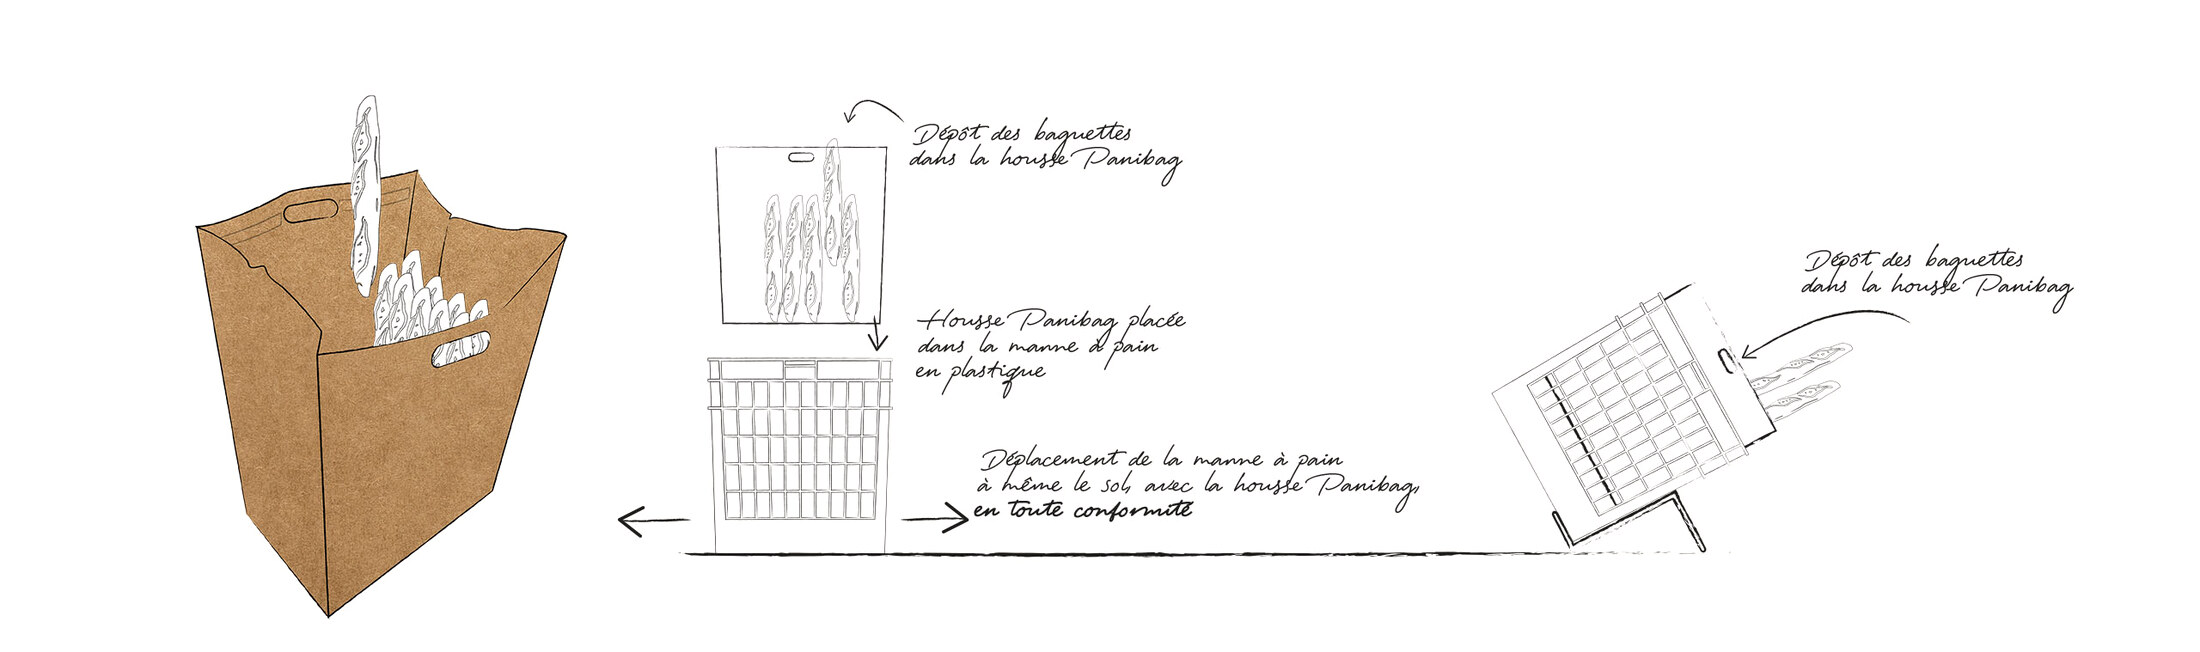 Dépôt des baguettes
dans la housse Panibag
Housse Panibag placée
dans la manne à pain
en plastique
Déplacement de la manne à pain
à même le sol, avec la housse Panibag,
en toute conformité
Dépôt des baguettes
dans la housse Panibag